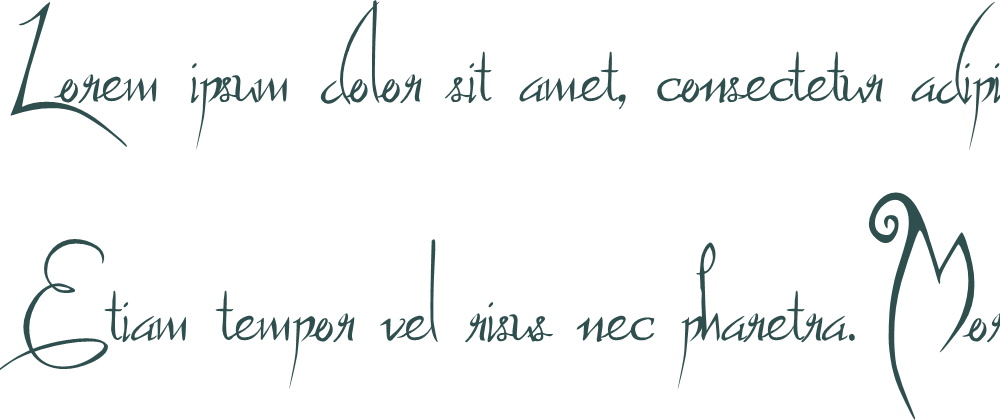 Lorem ipsum dolor sit amet, consectetur adipi
Etiam tempor vel risus nec pharetra. Mor